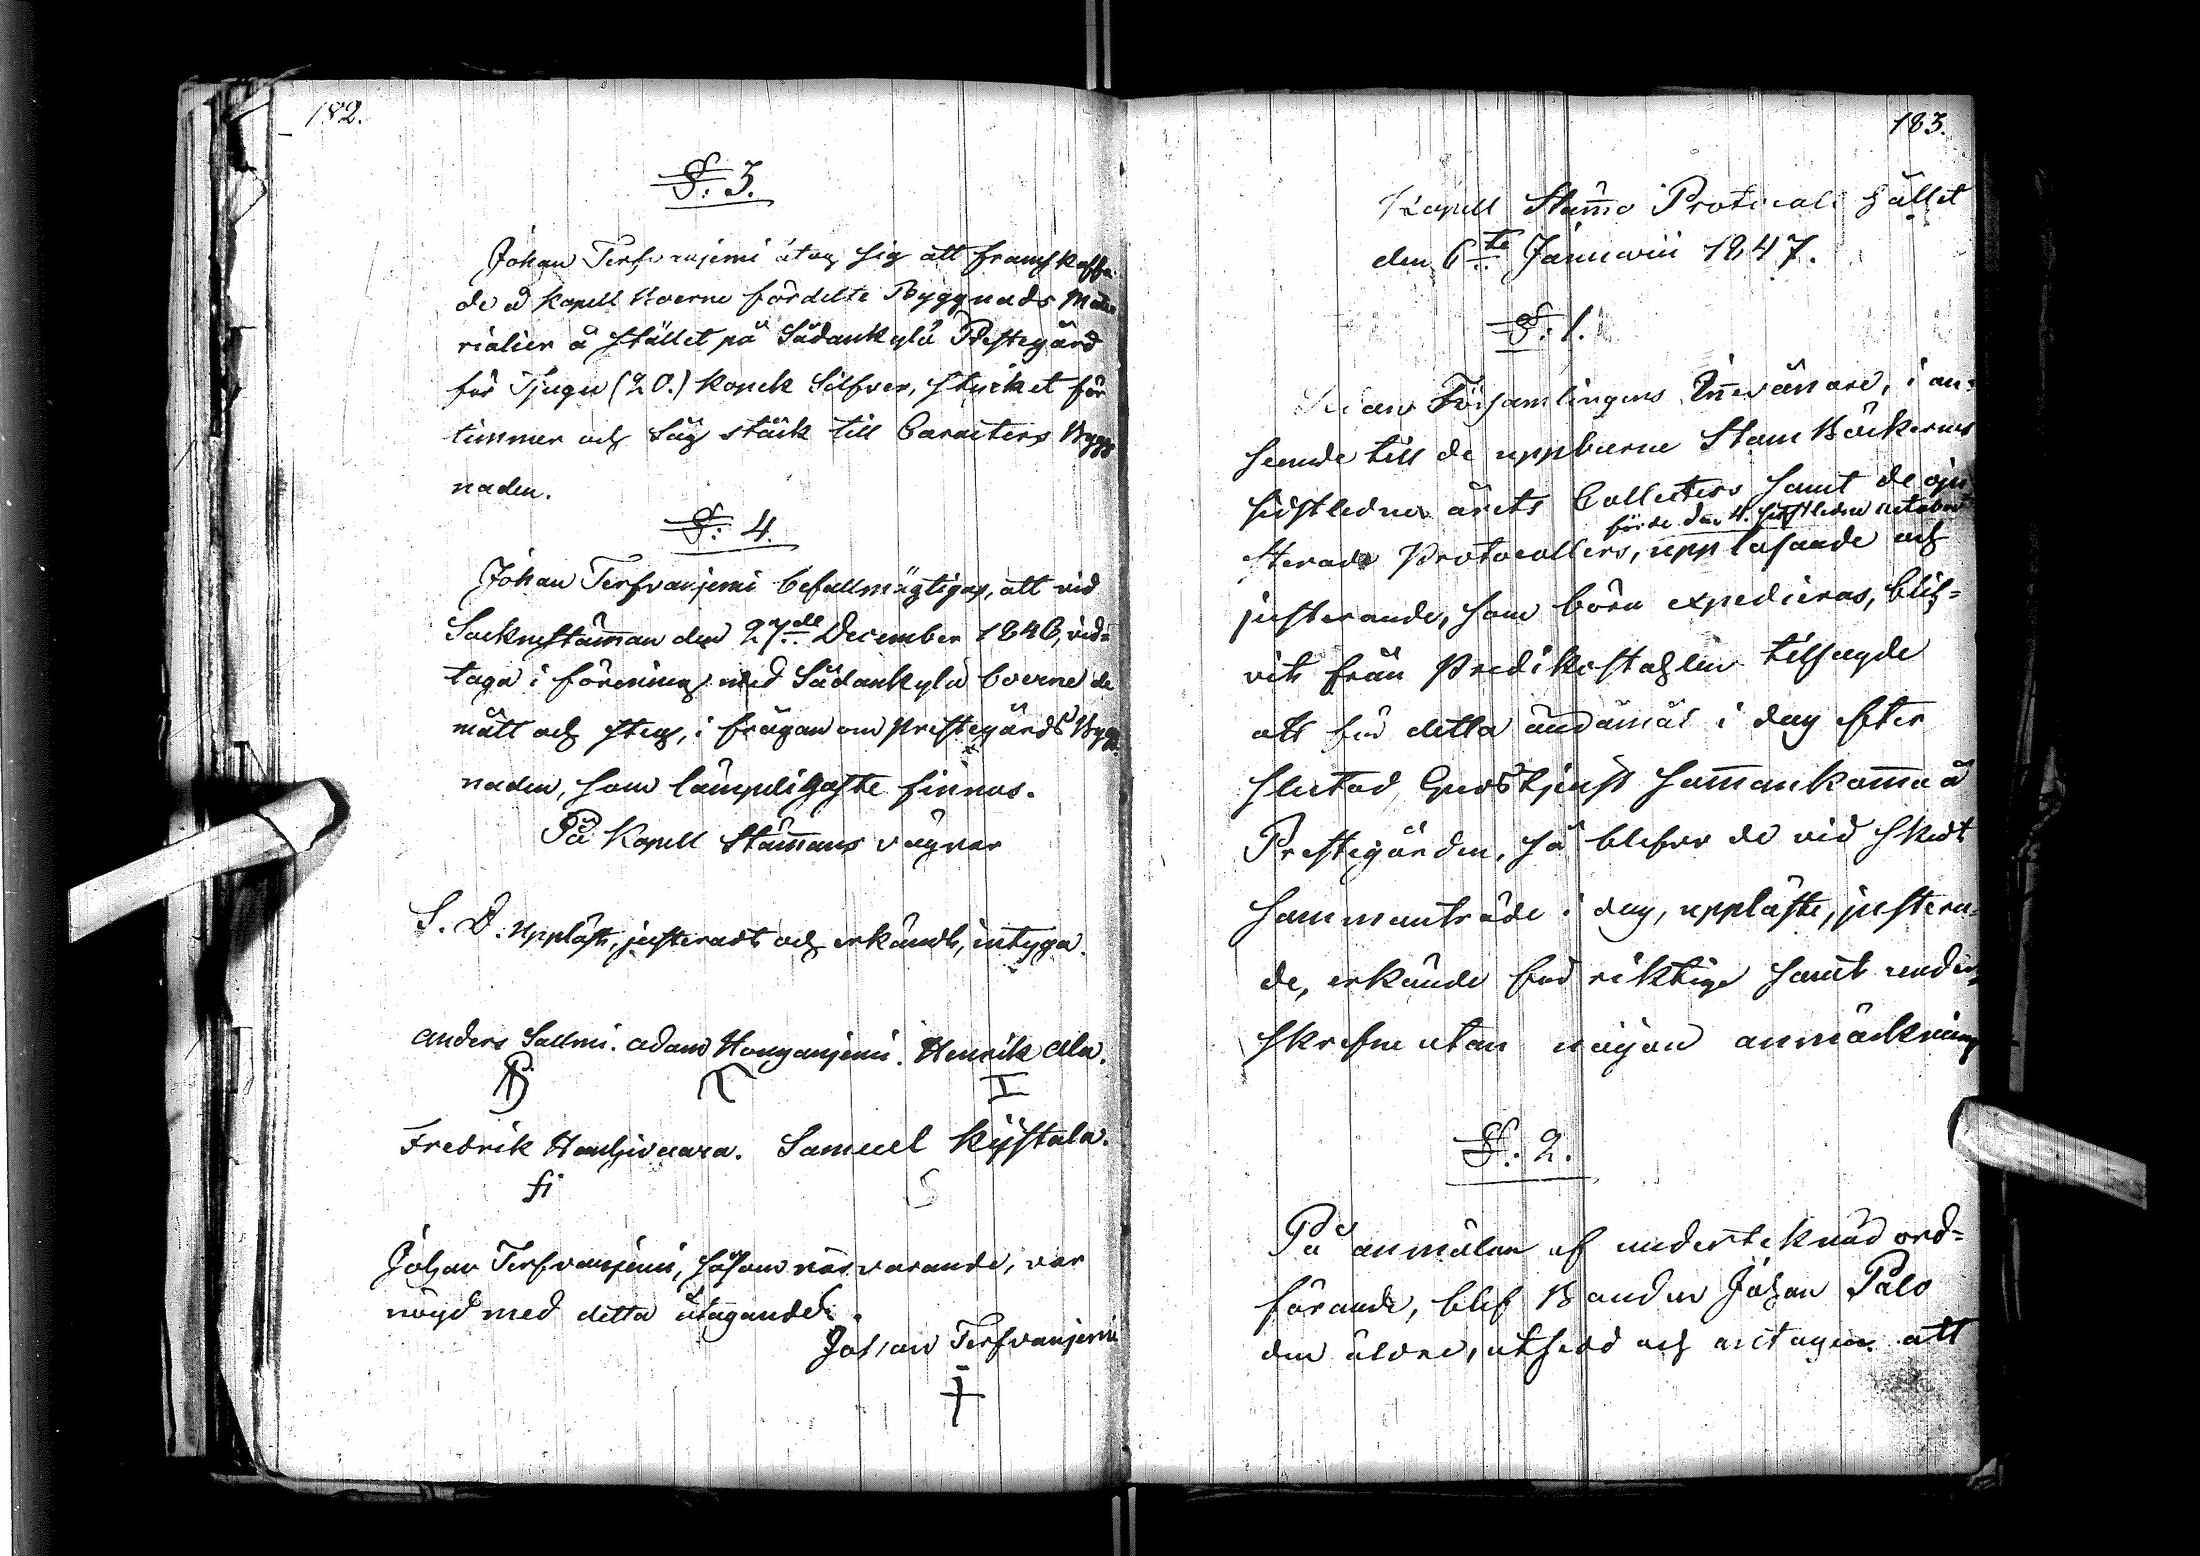 182.
§: 3.
Johan Terfvanjemi åtog sig att framskaffa
de å Kapell Boerne fördelte Byggnads Mate
rialier å stället på Sådankylä Prestegård
för Tjugu (20.) Kopek Silfver, stycket för
timmer och Såg stäck till Caracters Bygg
naden.
§: 4.
Johan Terfvanjemi befullmägtigas, att vid
Sockenstämman den 27de December 1846, vid=
taga i förening med Sådankylä boerne de
mått och steg, i frågan om Prestegårds Bygg
naden, som lämpligaste finnas.
På Kapell Stämmans vägnar
S. D. Uppläst, justeradt och erkändt, intyga.
Anders Sallmi. Adam Honganjemi. Henrik Ala.
Fredrik Hanhivaara. Samuel Kyştala.
Johan Terfvanjemi, såsom närvarande, var
nöjd med detta åtagande.
Johan Terfvanjemi
183.
Kapell Stämmo Protocoll hållet
den 6te Januarii 1847.
§: 1.
Sedan Församlingens Innevånare, i an=
seende till de uppburne Stam Böckernes
sistledne årets Collecters samt de oju
förde den 4. sistleden october
sterade Protocollers, uppläsande och
justerande, som böra expedieras, blif=
vit från Predikostahlen tillsagde
att för detta ändamål i dag efter
slutad Gudstjenst sammankomma å
Prestegården, så blefvo de vid skedt
sammanträde i dag, uppläste, justera=
de, erkände för riktige samt under=
skrefne utan någon anmärkning
§: 2.
På anmälan af undertecknad ord=
förande, blef Bonden Johan Palo
den äldre, utsedd och antagen att